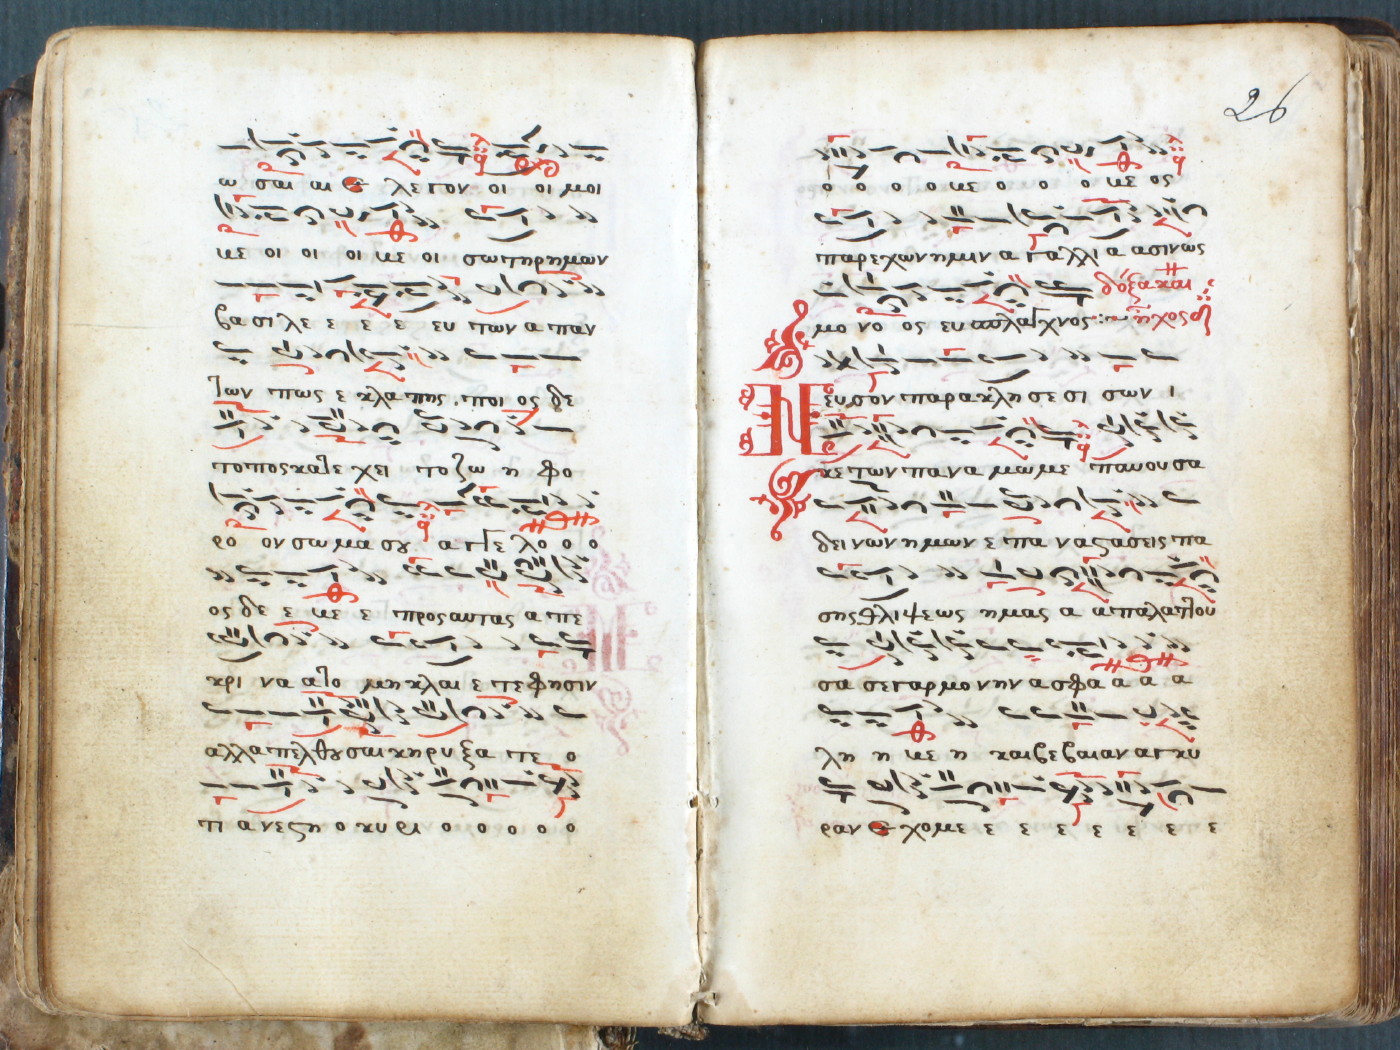 ω σαι αι ε λεγον οι οι μοι
με οι οι οι με οι σωτηρ ημων
βασι λε ε ε ε ευ των απαν
των πως ε κλαπης . ποι ος δε
τοπος κατε χει το ζω η φο
ρο ον σωμα σου αγγε λο ο ο
ος δε ε με ε προς αυτας απε
κρι να ατο μη κλαι ε τε φησιν
αλλ απελθουσαι κηρυ ξα τε ο
τι ανεστη ο κυ ρι ο ο ο ο ο
26
ο ο ο ο με ο ο ο με ος
παρεχων ημιν α γαλλι α ασιν ως
μο νο ος ευσπλαγχνος :
δόξα και
ἦχος
Νευσον παρακλη σε σι σων ι
κετων παναμωμε παυουσα
δεινων ημων ε πα ναστασεις πα
σης θλιψεως ημας α απαλαττου
σα σε γαρ μονην ασφα α α α
λη η με η και βεβαιαν αγκυ
ραν ε χομε ε ε ε ε ε ε ε